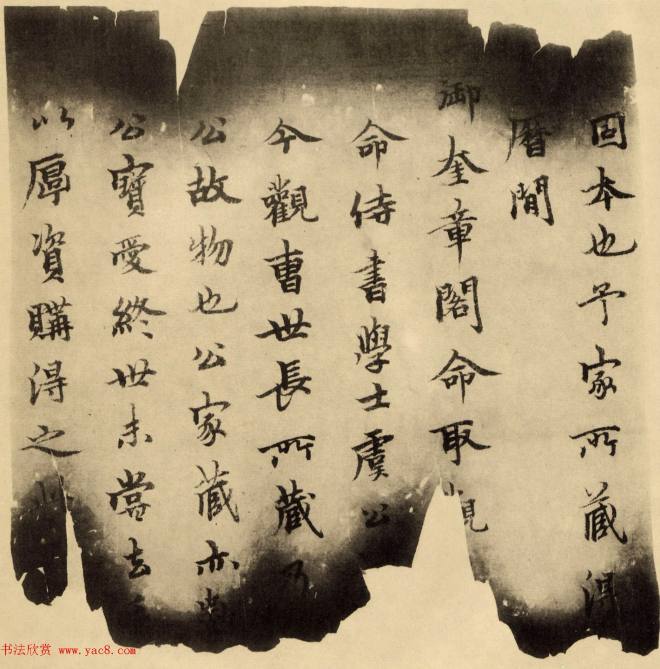 固本也予家所藏得
曆間
御奎章閣命取觀
命侍書學士虞公
今觀曹世長所藏乃
公故物也公家藏亦
公寶愛終世未嘗去
以厚資購得之
书法欣赏 www.yac8.com